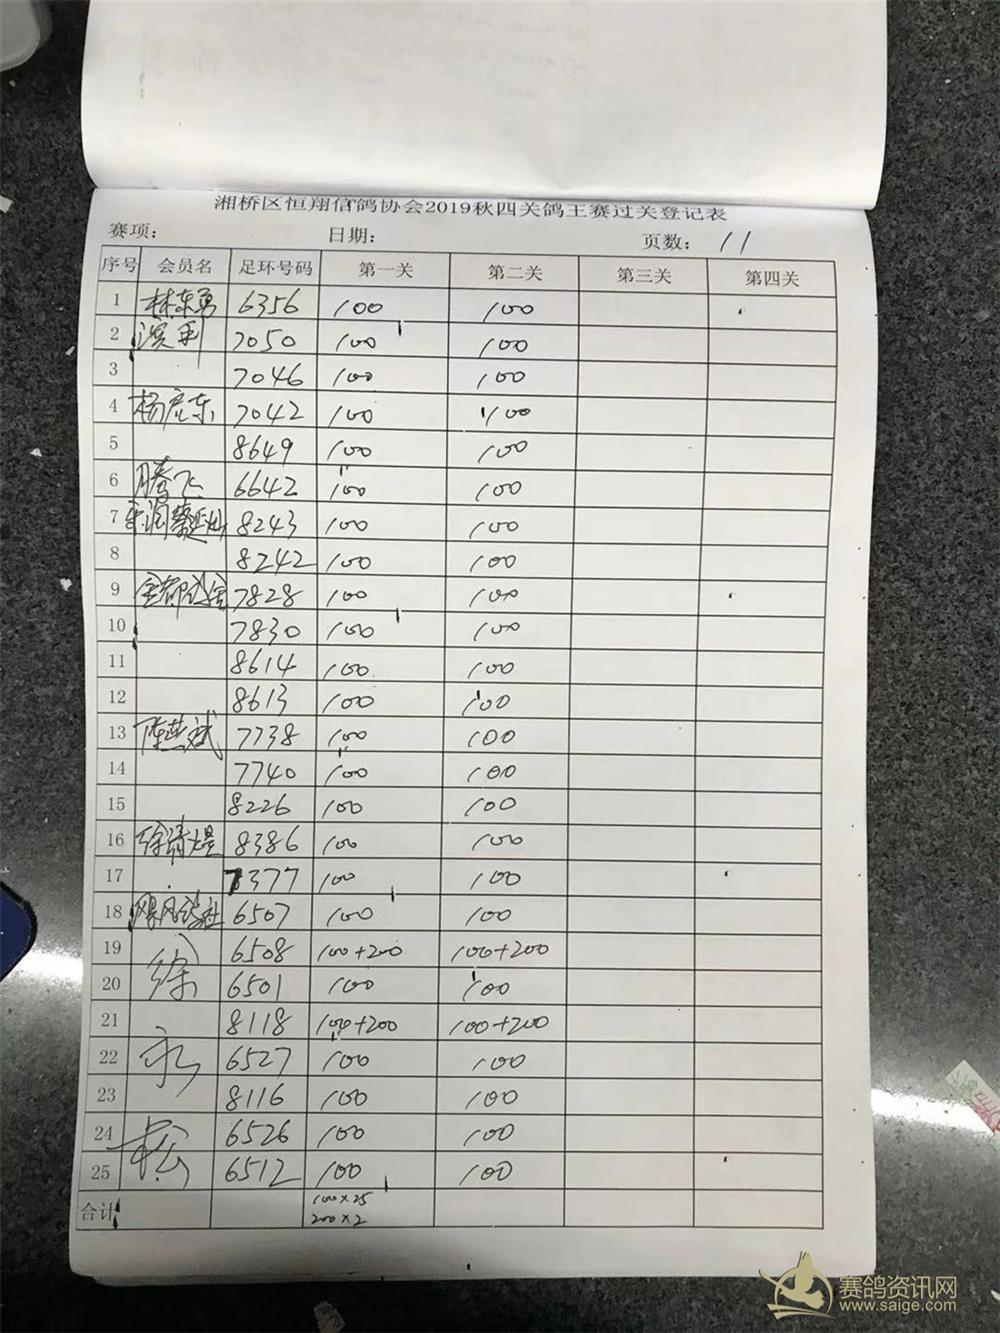 湘桥区恒翔信鸽协会2019秋四关鸽王赛过关登记表
赛项: 日期: 页数: 11
序号 会员名 足环号码 第一关 第二关 第三关 第四关
1 林东勇 6356 100 100
2 滨利 7050 100 100
3 7046 100 100
4 杨彦东 7042 100 100
5 8649 100 100
6 腾飞 6642 100 100
7 8243 100 100
8 8242 100 100
9 7828 100 100
10 7830 100 100
11 8614 100 100
12 8613 100 100
13 陈燕斌 7738 100 100
14 7740 100 100
15 8226 100 100
16 徐清煜 8386 100 100
17 7377 100 100
18 6507 100 100
19 徐 6508 100+200 100+200
20 6501 100 100
21 8118 100+200 100+200
22 永 6527 100 100
23 8116 100 100
24 松 6526 100 100
25 6512 100 100
合计 100×25
200×2
赛鸽资讯网
www.saige.com